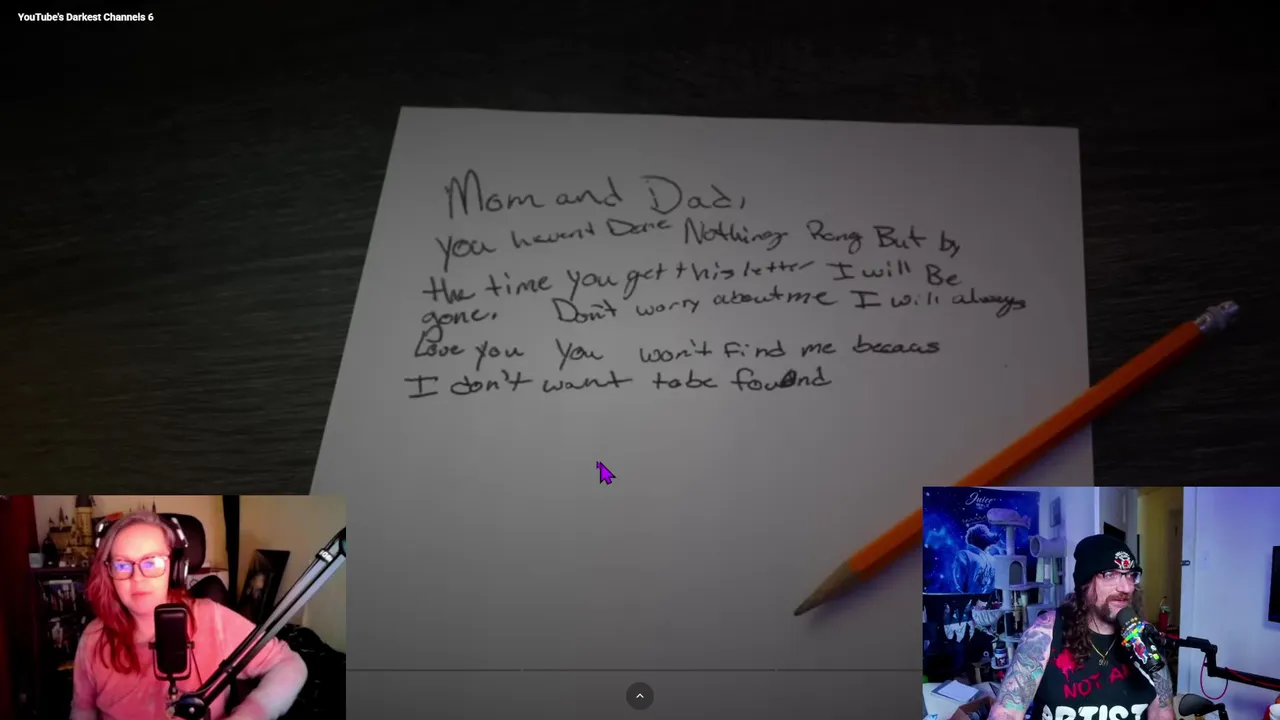 YouTube's Darkest Channels 6
Mom and Dad,
You havent Done Nothing Rong But by
the time you get this letter I will Be
gone. Don't worry about me I will always
Love you You won't find me becaus
I don't want to be found
Juice
NOT AN
ARTIST